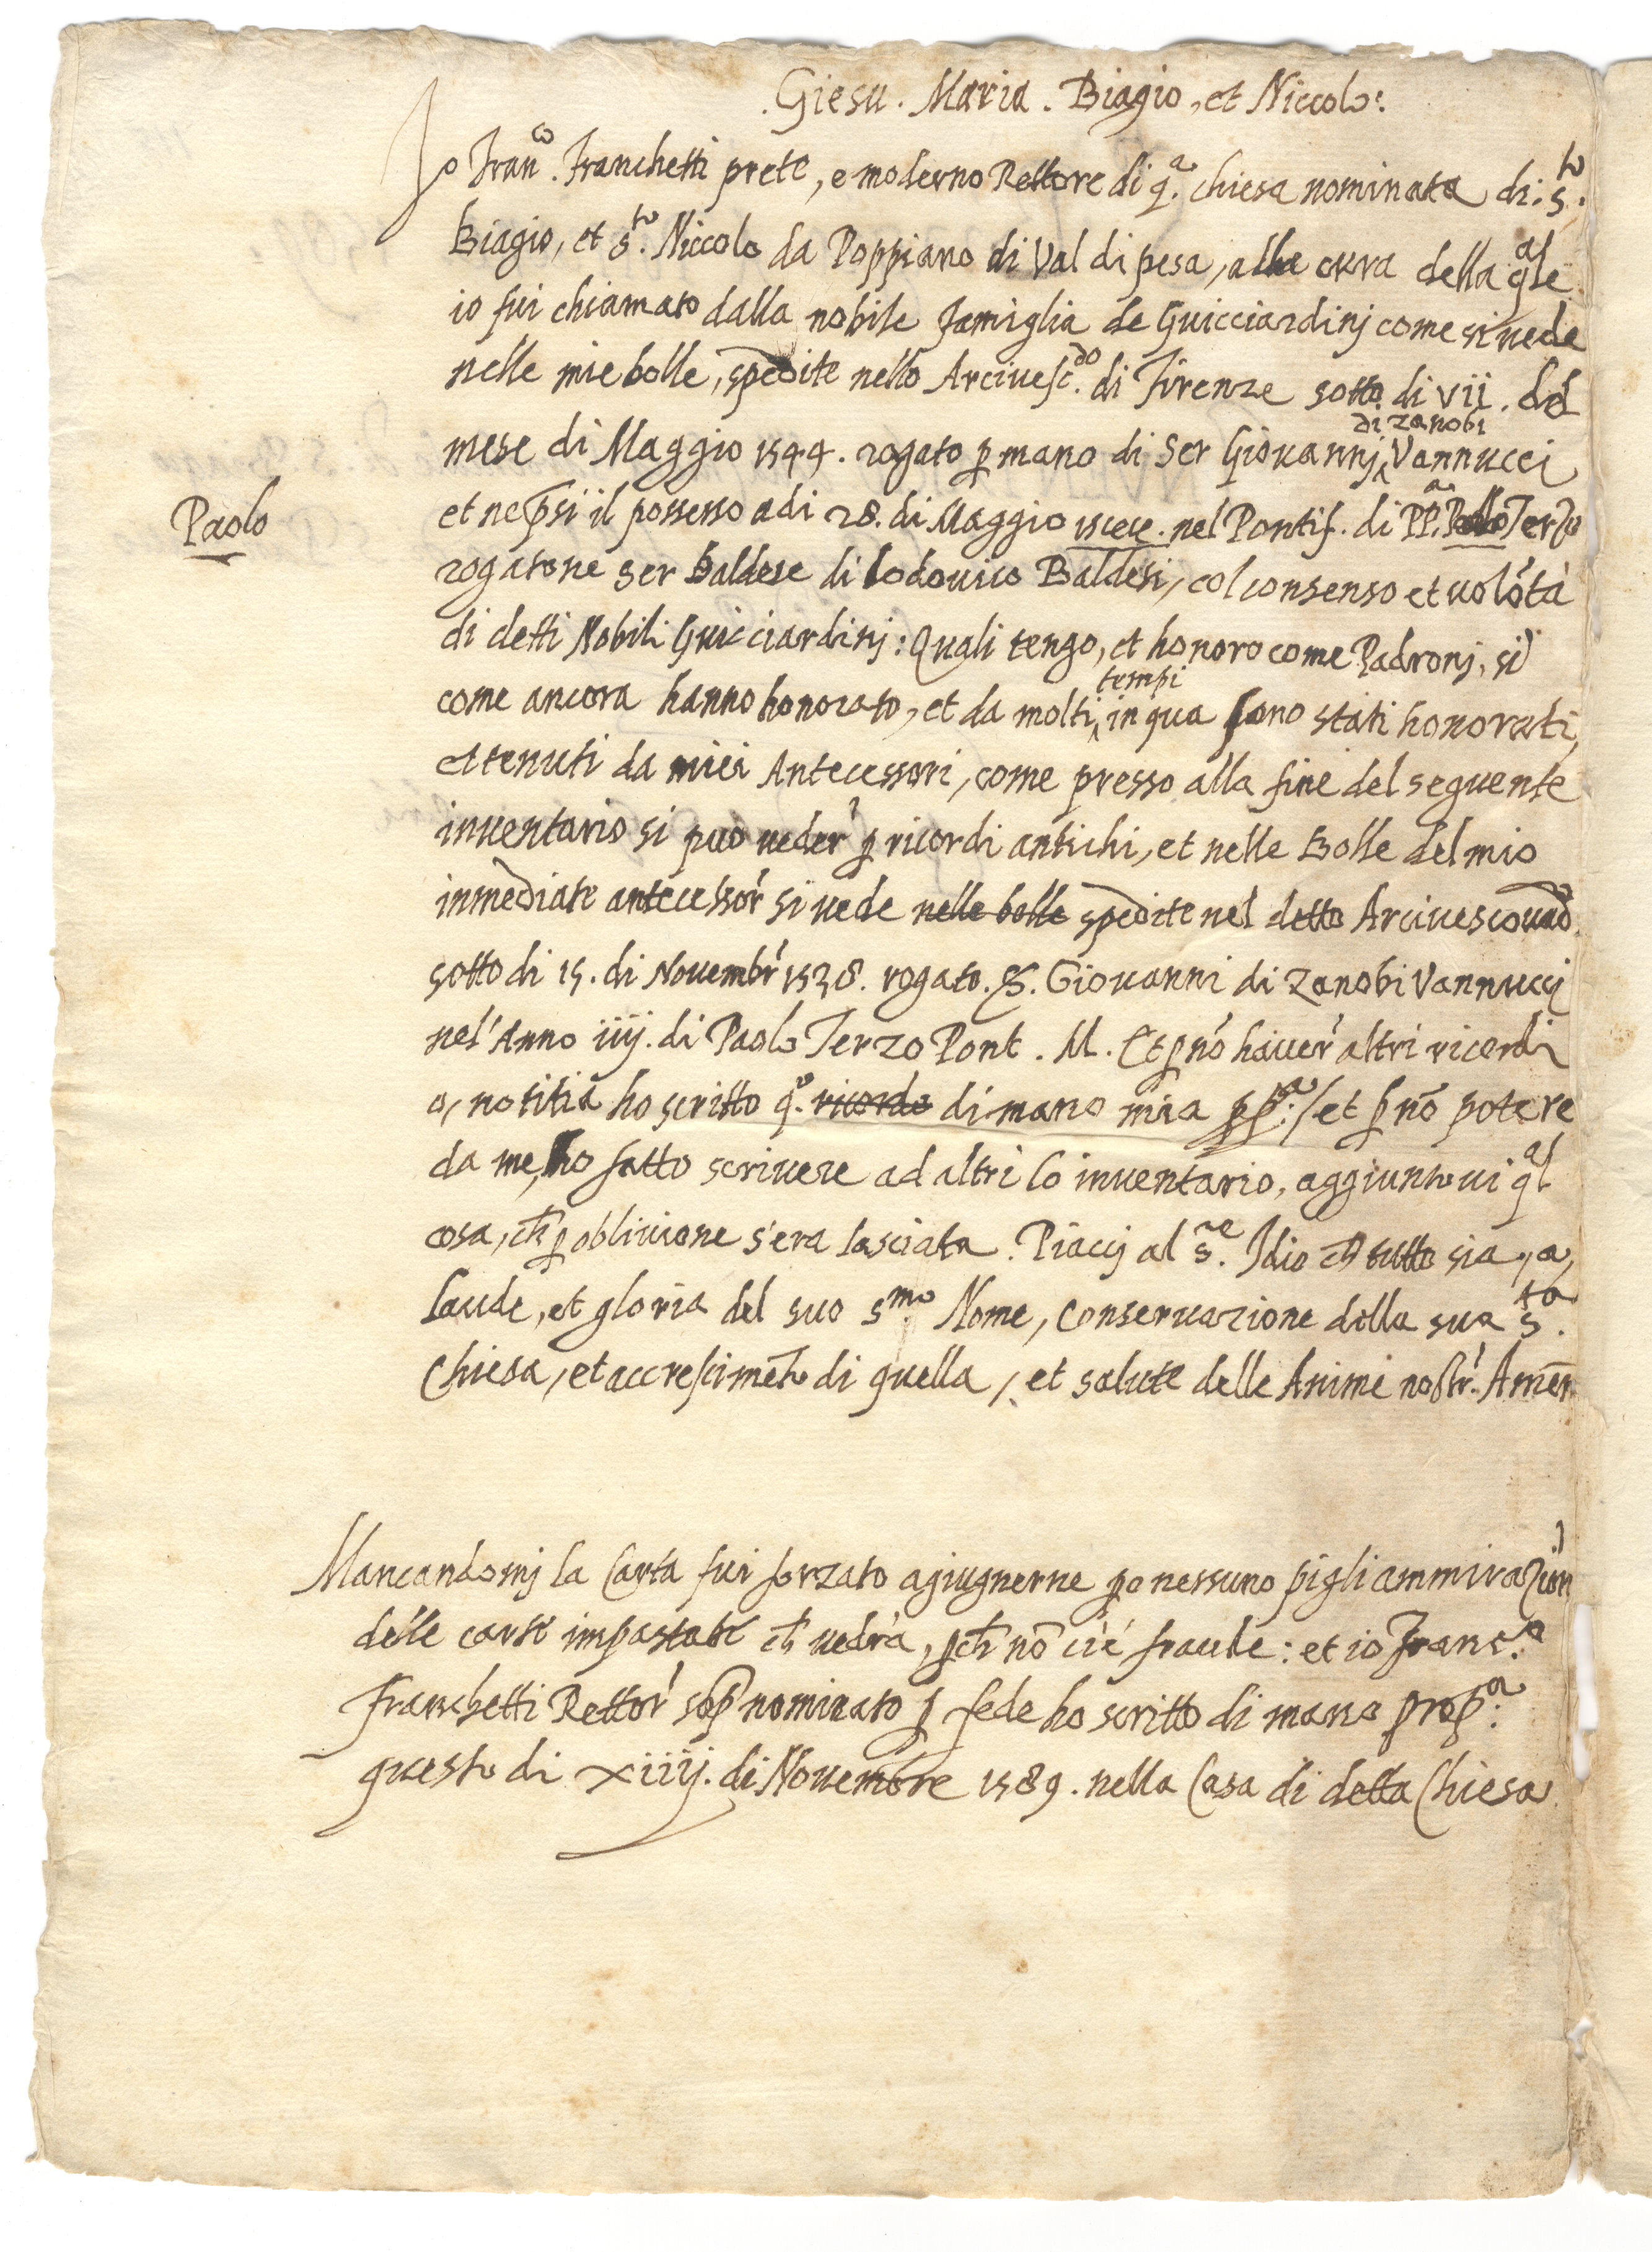 .Giesu. Maria. Biagio, et Niccolo:
Io Fran.co Franchetti prete, e moderno Rettore di q.a chiesa nominata di. S.to
Biagio, et S.to Niccolo da Poppiano di Val di pesa, alla cura della qale
io fui chiamato dalla nobile famiglia de Guicciardinj come si uede
nelle mie bolle, spedite nello Arciuesc.do di Firenze sotto di VII. del
mese di Maggio 1544. rogato p mano di Ser Giouannj di zanobi Vannucci
Paolo
et ne psi il possesso adi 28. di Maggio nel Pontif. di PP.a Terzo
rogatone Ser Baldese di Lodouico Baldesi, col consenso et uolōtà
di detti Nobili Guicciardinj: Quali tengo, et honoro come Padronj, si
come ancora hanno honorato, et da molti tempi in qua sono stati honorati,
et tenuti da miei Antecessori, come presso alla fine del seguente
inuentario si può ueder' p ricordi antichi, et nelle Bolle del mio
inmediate antecessor' si uede nelle bolle spedite nel detto Arciuescouado
sotto di 15. di Nouembr' 1538. rogato. S. Giouanni di Zanobi Vannuccj
nel' Anno iiij. di Paolo Terzo Pont. M. Et p nō hauer' altri ricordi
o, notitia ho scritto q.o ricordo di mano mia pp.a / et p nō potere
da me, ho fatto scriuere ad altri lo inuentario, aggiuntoui qal
cosa, ch p obliuione s'era lasciata. Piaccj al S.re Idio ch tutto sia, a,
laude, et gloria del suo S.mo Nome, Conseruazione della sua S.ta
Chiesa, et accrescimēto di quella, et salute delle Anime nostr'. Amēn
Mancandomj la Carta fui forzato agiugnerne po nessuno pigli ammirazion
delle carte impastate ch uedrà, pch nō ci è fraude: et io Franc.o
Franchetti Rettor' sop nominato p fede ho scritto di mano prop.a
questo di xiiij. di Nouembre 1589. nella Casa di detta Chiesa